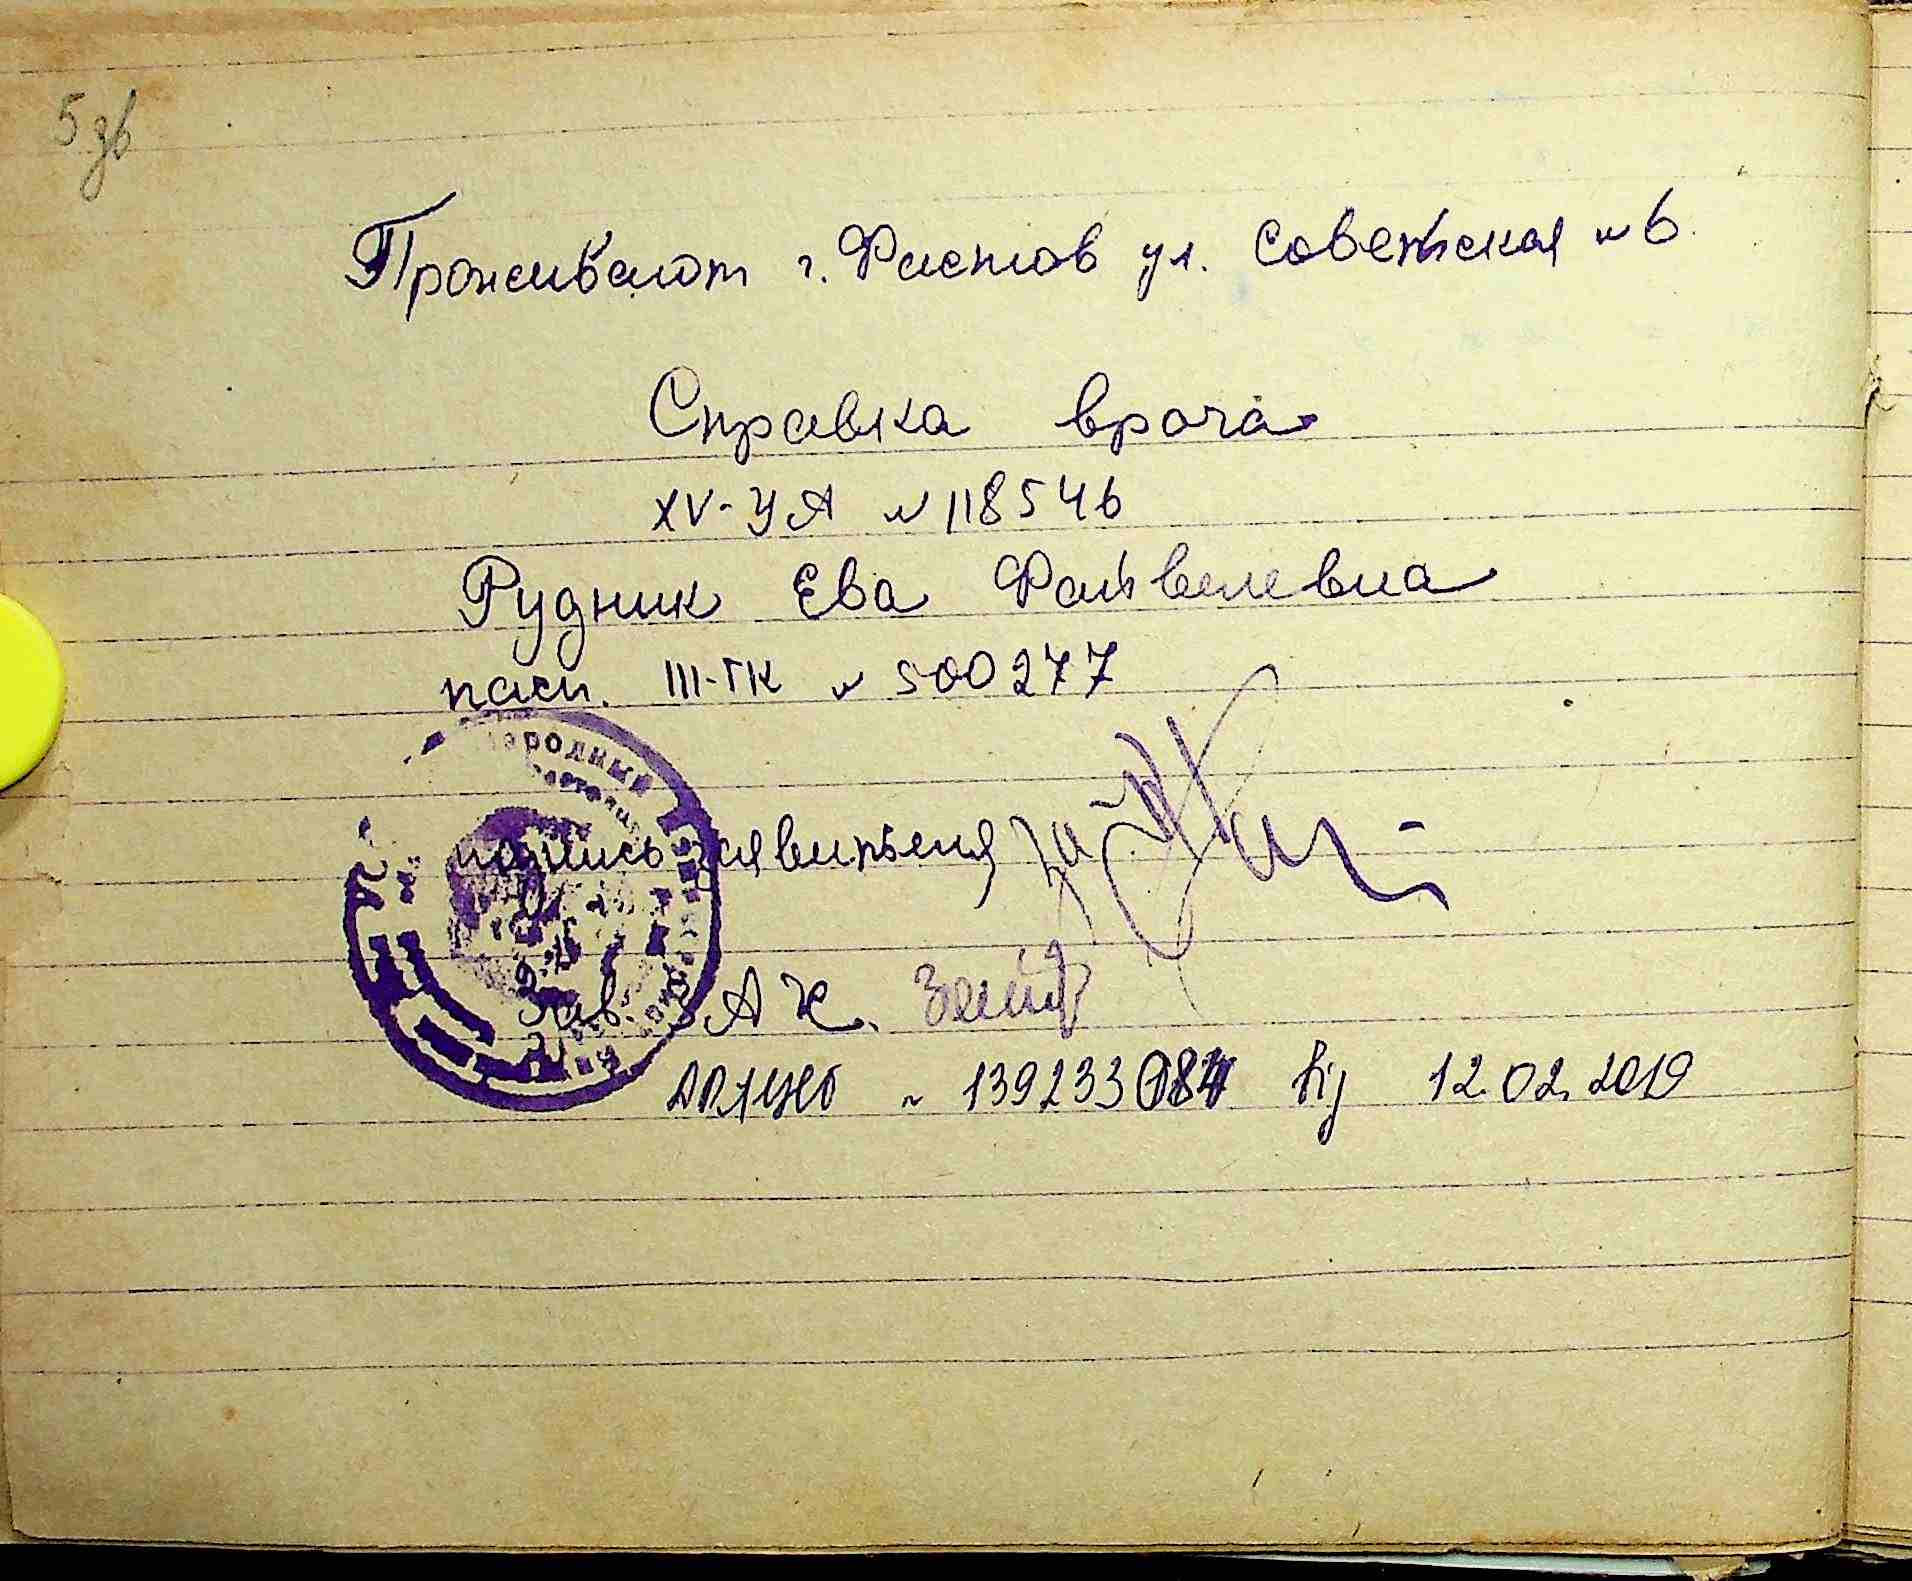 5 зв
Проживают г. Фастов ул. Советская № 6
Справка врача
XV-УА № 118546
Рудник Ева Файвелевна
пасп. III-ГК № 500277
Народный
подпись заявителя за
Зав. ЗАГС.
№ 139233084 від 12.02.2019